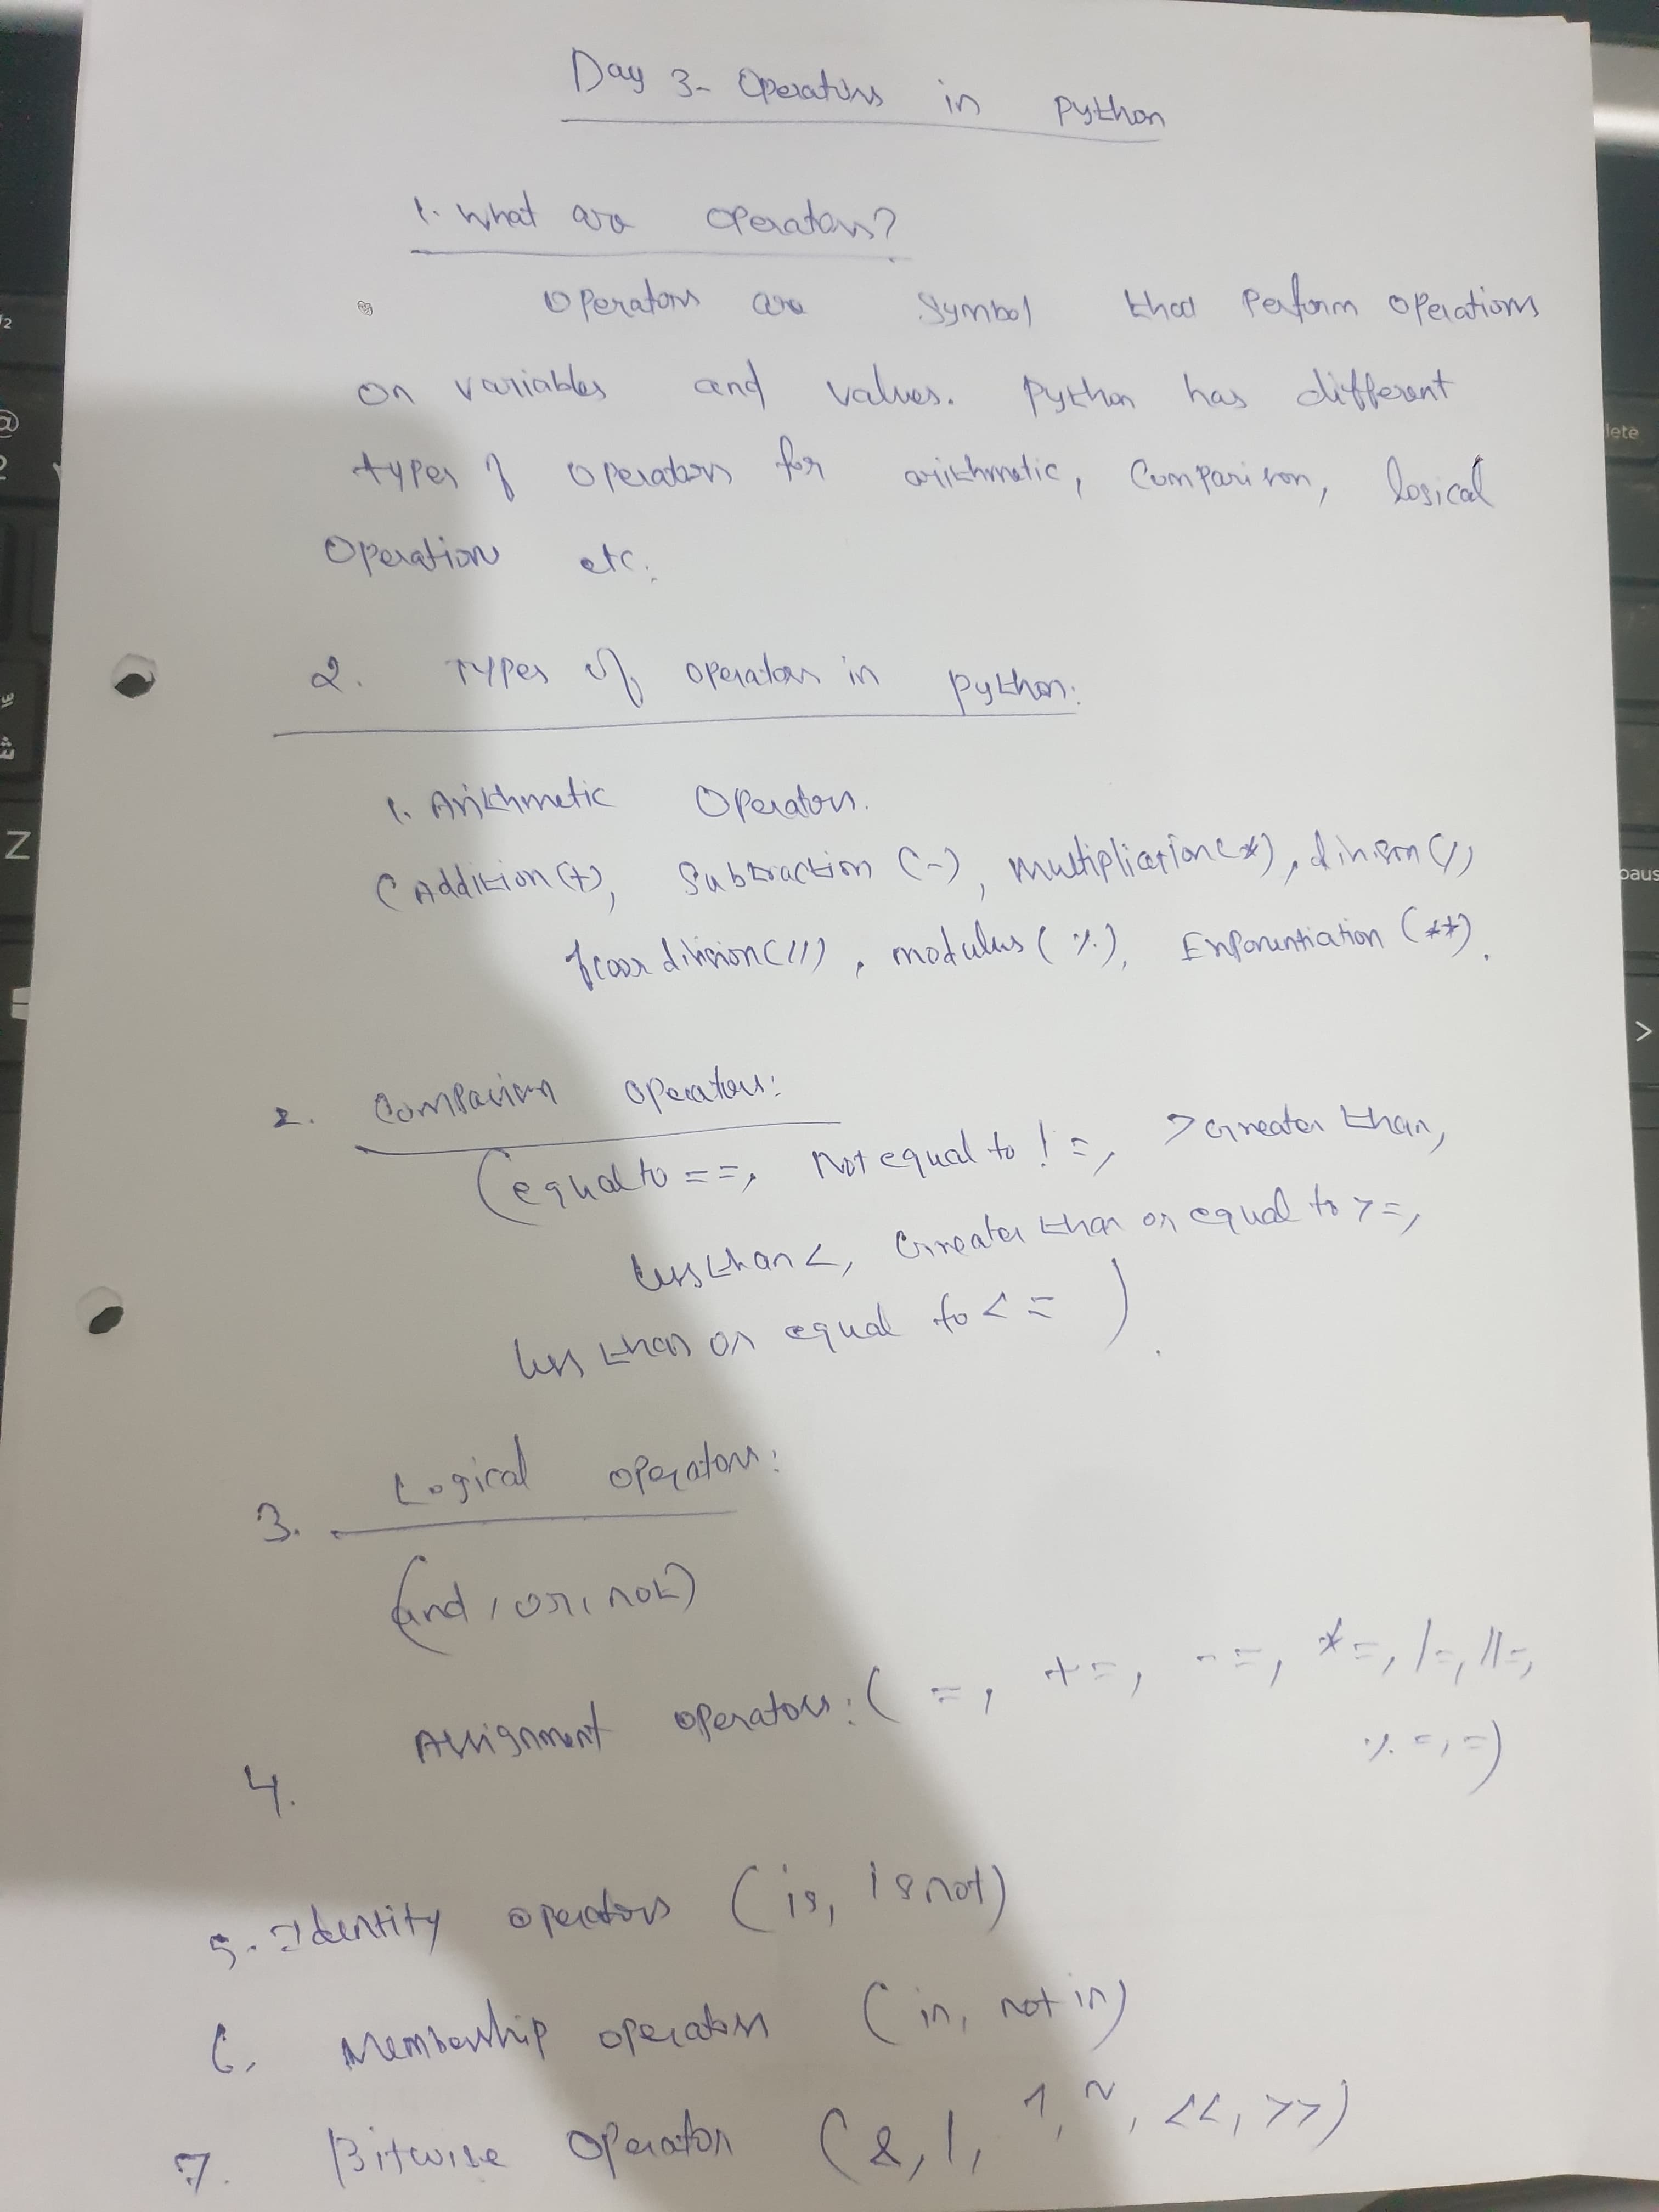 Day 3- Operators in Python
1. What are operators?
Operators are symbol that perform operations
on variables and values. Python has different
types of operators for arithmetic, Comparison, logical
Operation etc.
2. Types of operators in python:
1. Arithmetic Operators.
(Addition(+), Subtraction (-), multiplication(*), division(/)
floor division(//), modulus (%), Exponentiation (**).
2. Comparison operators:
(equal to ==, Not equal to !=, > Greater than,
less than <, Greater than or equal to >=,
less than or equal to <= ).
3. Logical operators:
(and, or, not)
4. Assignment operators: ( =, +=, -=, *=, /=, //=,
%=, =)
5. Identity operators (is, is not)
6. Membership operators (in, not in)
7. Bitwise Operator (&, |, ^, ~, <<, >>)